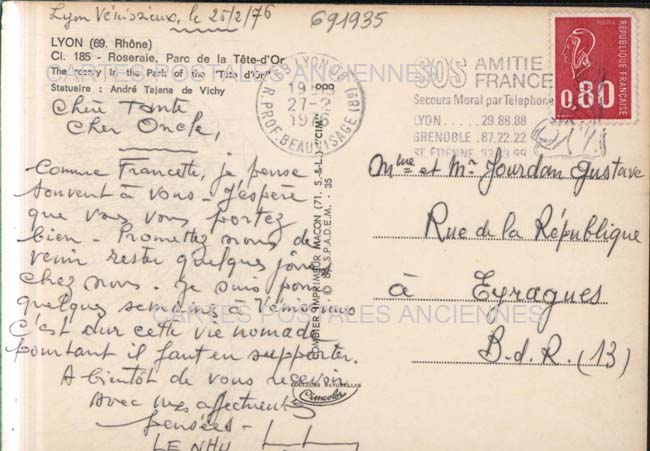 Lyon Vénissieux, le 25/2/76
691935
LYON (69. Rhône)
Ci. 185 - Roseraie, Parc de la Tête-d'Or
The rosery in the Park of the "Tête d'Or"
Statuaire : André Tajana de Vichy
Chère Tante
Cher Oncle,
Comme Francette, je pense
souvent à vous - J'espère
que vous vous portez
bien - Promettez nous de
venir rester quelques jours
chez nous. Je suis pour
quelques semaines à Vénissieux
C'est dur cette vie nomade
pourtant il faut en supporter.
A bientôt de vous recevoir
Avec mes affectueuses
pensées -
LE NHU
COMBIER IMPRIMEUR MACON (71. S.-&-L.) "CIM"
© BY S.P.A.D.E.M. - 35
COULEURS NATURELLES
Cimcolor
LYON
27-2
R. PROF. BEAUVISAGE (8E)
SOS AMITIE
FRANCE
Secours Moral par Telephone
LYON.... 29.88.88
GRENOBLE . 87.22.22
ST ÉTIENNE
POSTES
REPUBLIQUE FRANÇAISE
0,80
Mme et Mr Jourdan Gustave
Rue de la République
à Eyragues
B.d.R. (13)
CARTES POSTALES ANCIENNES
CARTES POSTALES ANCIENNES